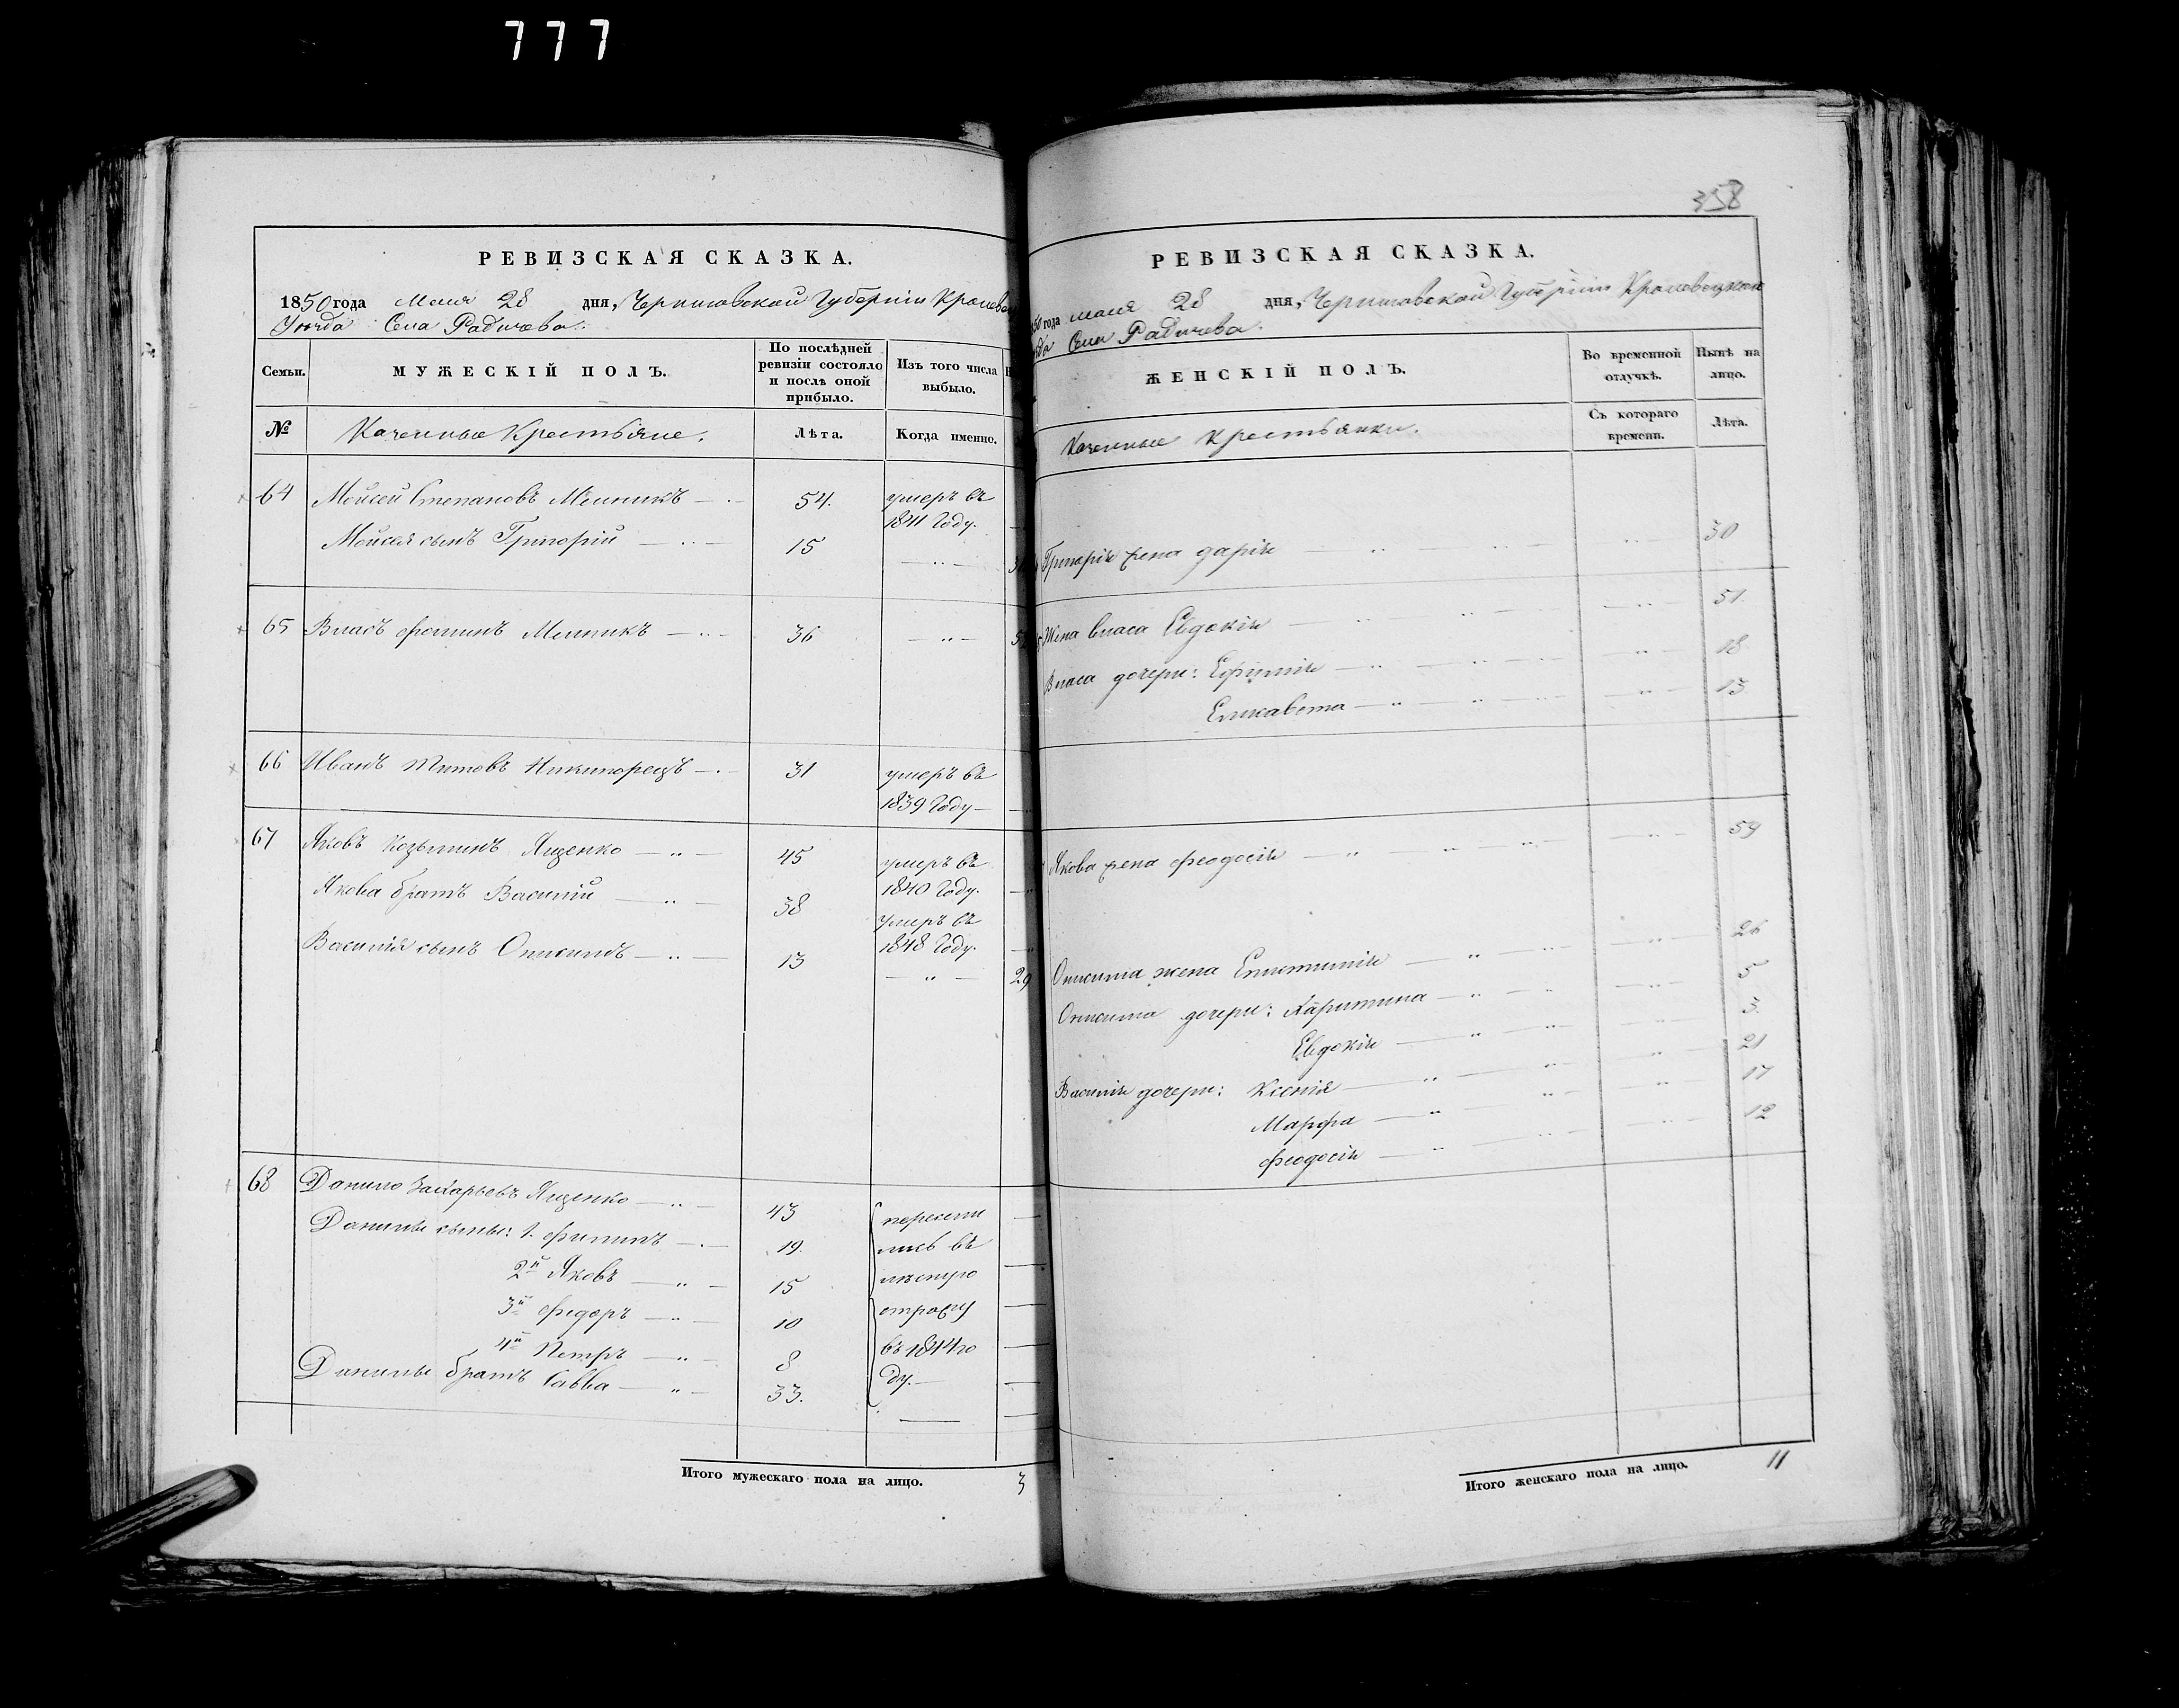 777
РЕВИЗСКАЯ СКАЗКА.
1850 года Маия 28 дня, Черниговской Губернии Кролевец
Уезда Села Радичева.
Семьи. МУЖЕСКІЙ ПОЛЪ. По послѣдней ревизіи состояло и послѣ оной прибыло. Изъ того числа выбыло.
№ Казенные Крестьяне. Лѣта. Когда именно.
64 Мойсей Степановъ Мелникъ 54. умеръ въ
1841 Году.
Мойсея сынъ Григорій 15
65 Власъ Фоминъ Мелникъ 36
66 Иванъ Титовъ 31 умеръ въ
1839 Году
67 Яковъ Козьминъ Ященко 45 умеръ въ
1840 Году.
Якова братъ Василій 38 умеръ въ
1848 Году.
Василія сынъ Онисимъ 13 29
68 Данило Захарьевъ Ященко 43 пересели
Данилы сыны: 1. Филипъ 19. лись въ
2й Яковъ 15
3й Федоръ 10
4й Петръ 8 въ 1844 го
Данилы братъ Савва 33. ду.
Итого мужескаго пола на лицо. 3
358
РЕВИЗСКАЯ СКАЗКА.
года маия 28 дня, Черниговской Губернии Кролевецкого
Села Радичева.
ЖЕНСКІЙ ПОЛЪ. Во временной отлучкѣ. Нынѣ на лицо.
Казенные Крестьянки. Съ котораго времени. Лѣта.
Григорія жена Дарія 30
Жена Власа Евдокія 51
Власа дочери: Ефимія 18
Елисавета 13
Якова жена Феодосія 59
Онисима жена Епистимія 26
Онисима дочери: Харитина 5
Евдокія 3.
Василія дочери: Ксенія 21
Марфа 17
Феодосія 12
Итого женскаго пола на лицо. 11